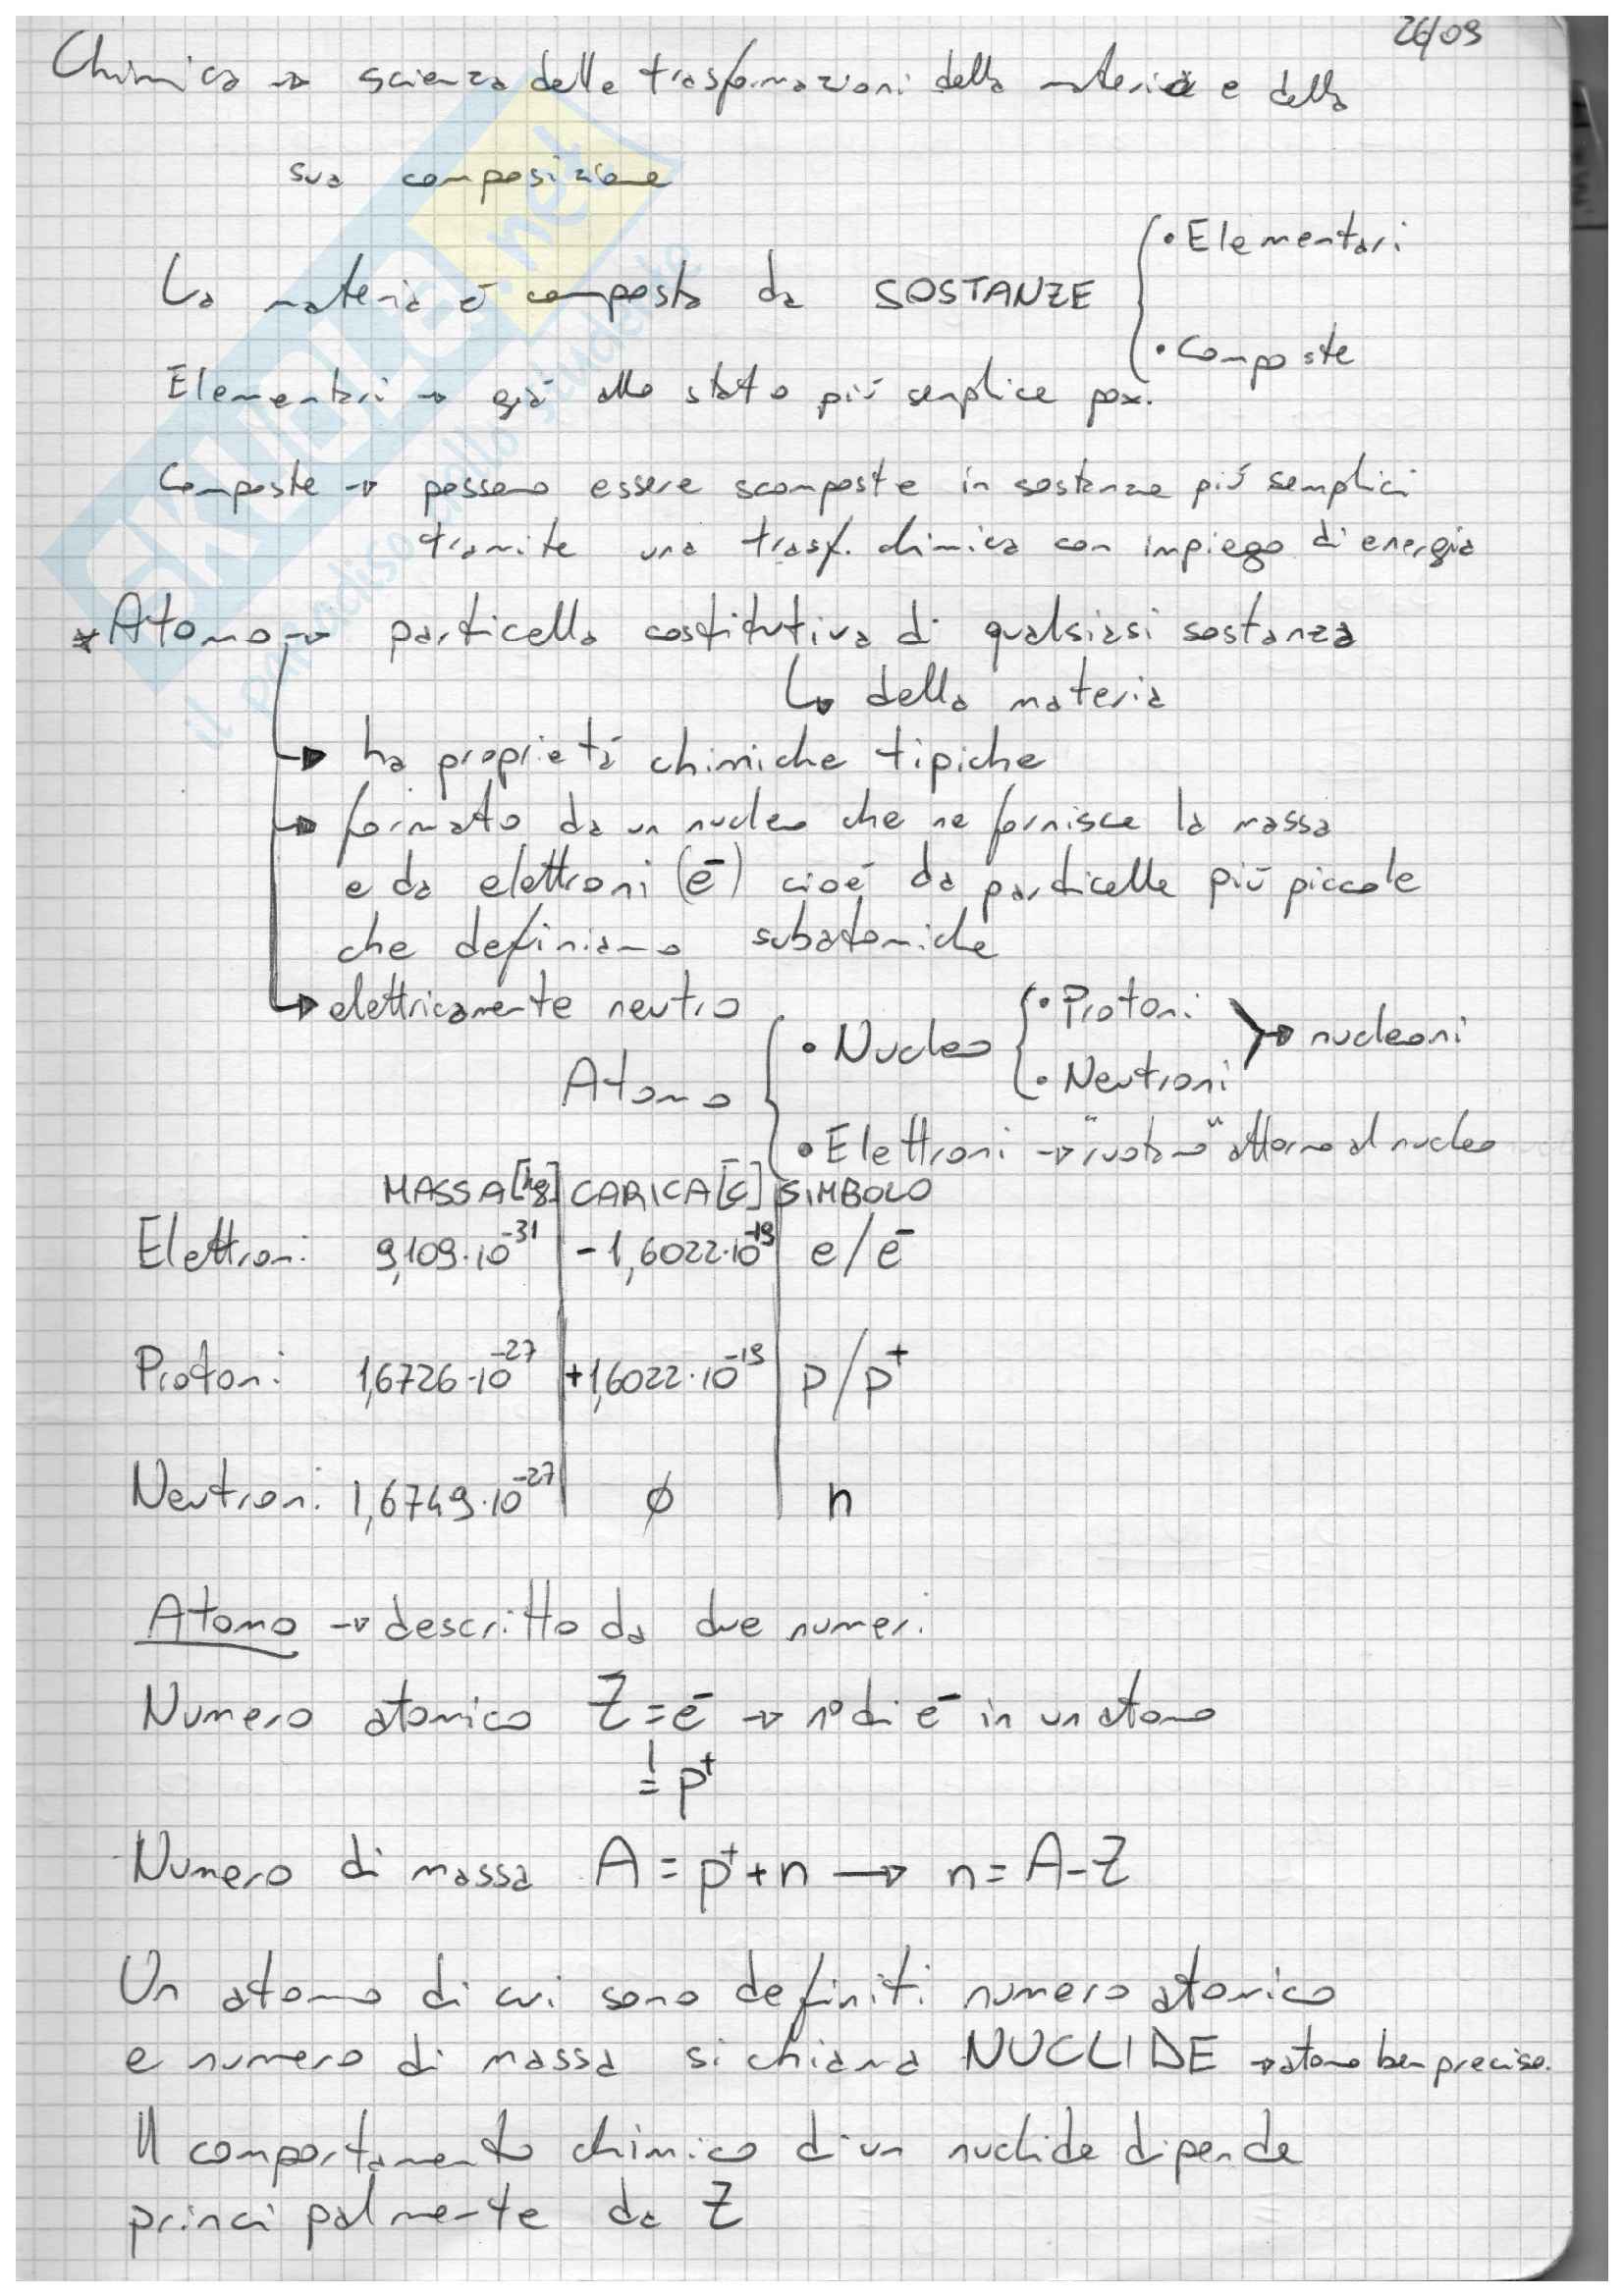 26/09
Chimica → scienza delle trasformazioni della materia e della
sua composizione
La materia è composta da SOSTANZE { • Elementari
• Composte
Elementari → già allo stato più semplice pox.
Composte → possono essere scomposte in sostanze più semplici
tramite una trasf. chimica con impiego di energia
* Atomo → particella costitutiva di qualsiasi sostanza
↳ della materia
→ ha proprietà chimiche tipiche
→ formato da un nucleo che ne fornisce la massa
e da elettroni (e⁻) cioé da particelle più piccole
che definiamo subatomiche
→ elettricamente neutro
Atomo { • Nucleo { • Protoni
• Neutroni → nucleoni
• Elettroni → "ruotano" attorno al nucleo
MASSA [kg] | CARICA [C] | SIMBOLO
Elettroni 9,109·10⁻³¹ | -1,6022·10⁻¹⁹ | e/e⁻
Protoni 1,6726·10⁻²⁷ | +1,6022·10⁻¹⁹ | p/p⁺
Neutroni 1,6749·10⁻²⁷ | ø | n
Atomo → descritto da due numeri
Numero atomico Z = e⁻ → n° di e⁻ in un atomo
= p⁺
Numero di massa A = p⁺ + n → n = A - Z
Un atomo di cui sono definiti numero atomico
e numero di massa si chiama NUCLIDE → atomo ben preciso.
Il comportamento chimico di un nuclide dipende
principalmente da Z
SKUOLA.net
il paradiso dello studente